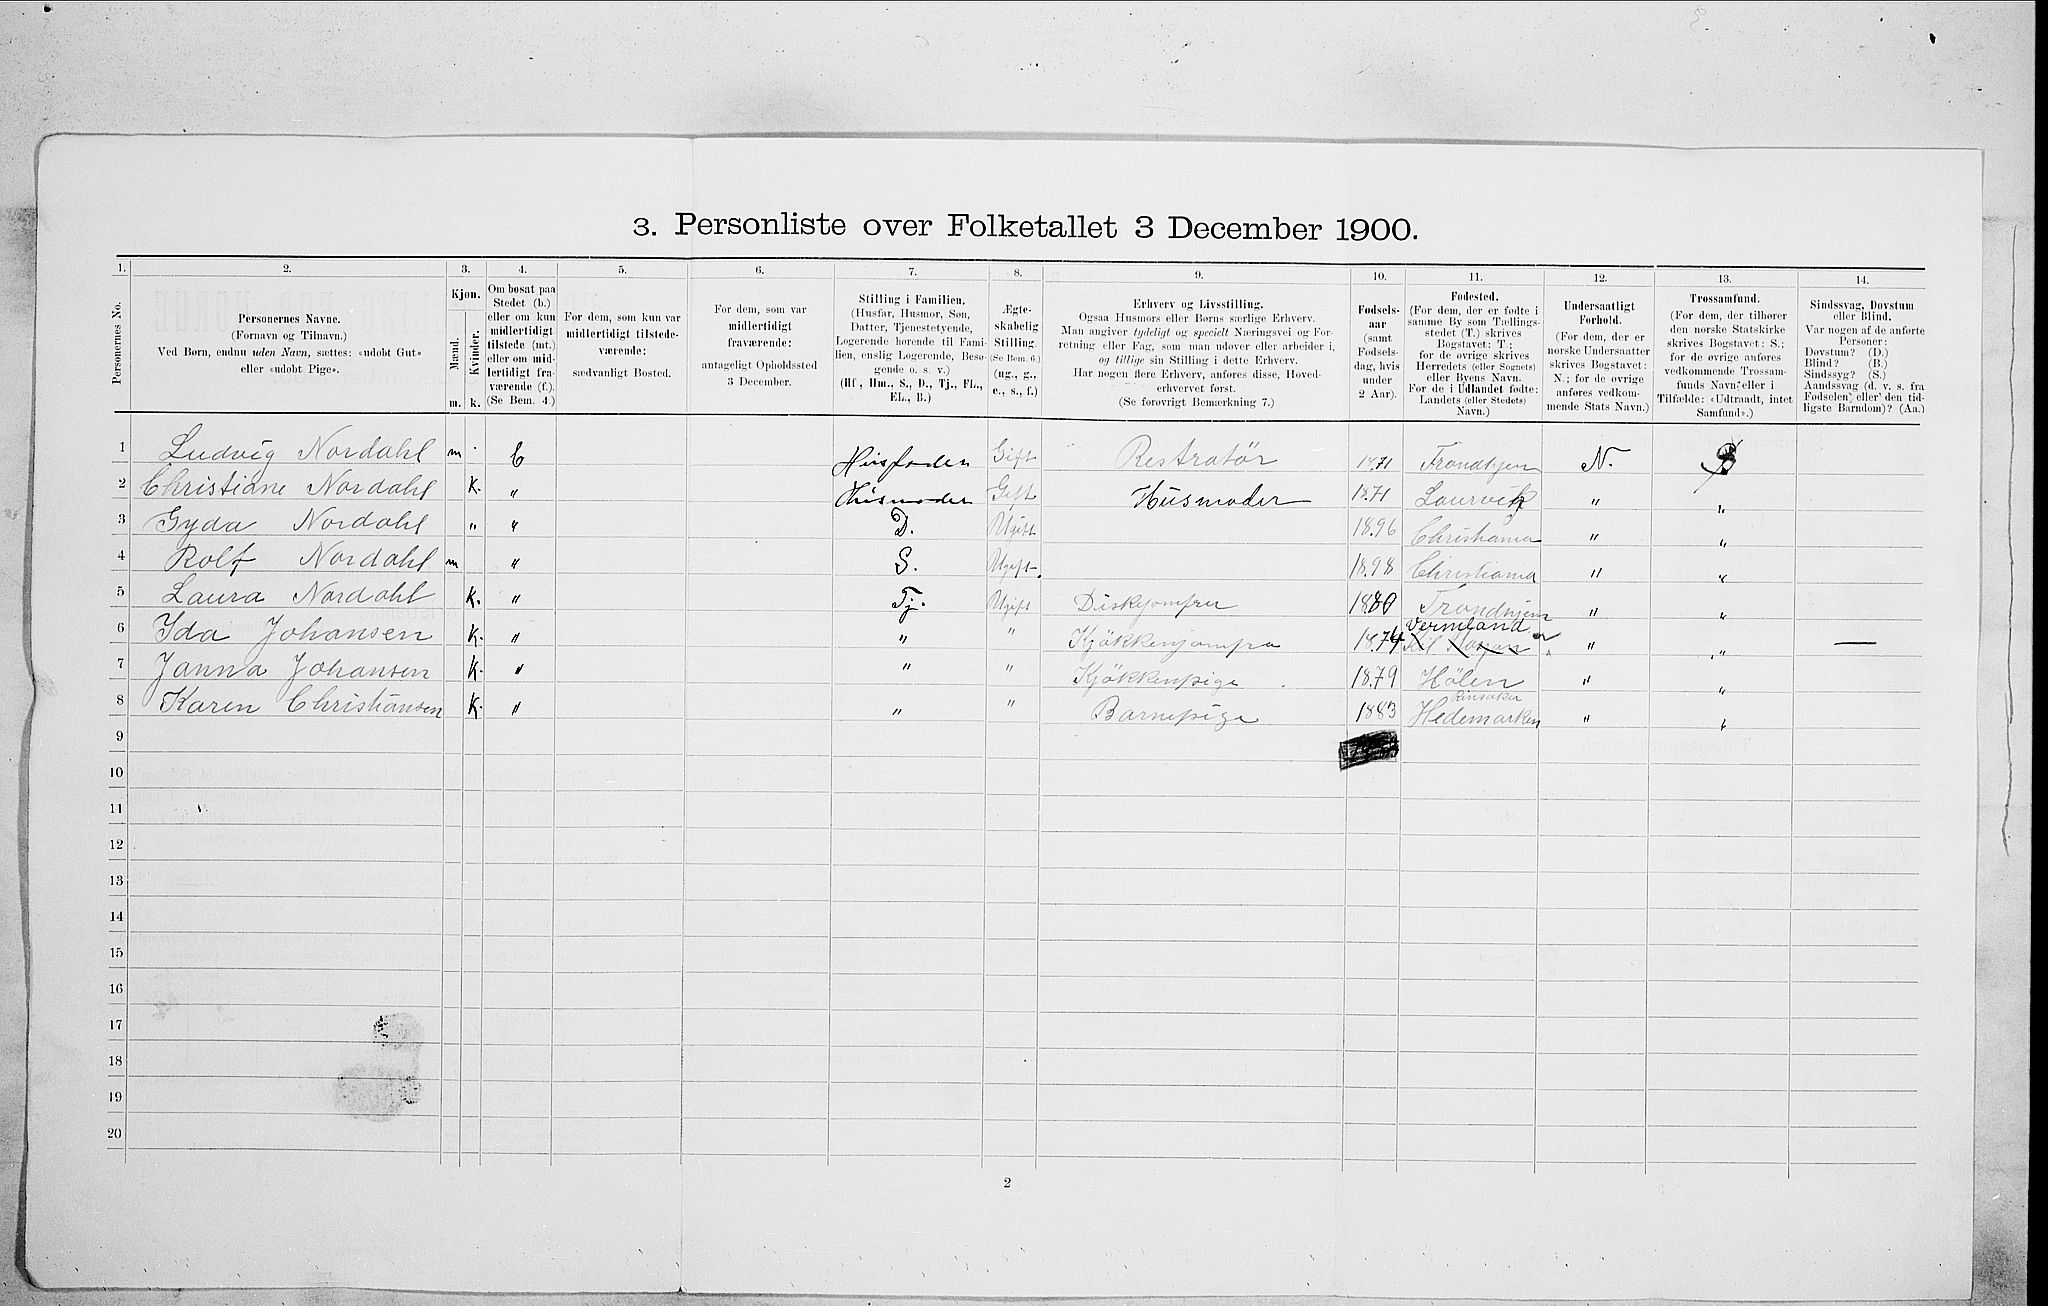 3. Personliste over Folketallet 3 December 1900.
1. 2. 3. 4. 5. 6. 7. 8. 9. 10. 11. 12. 13. 14.
Personernes No.
Personernes Navne.
(Fornavn og Tilnavn.)
Ved Børn, endnu uden Navn, sættes: «udøbt Gut»
eller «udøbt Pige».
Kjøn.
Mænd.
Kvinder.
m. k.
Om bosat paa
Stedet (b.)
eller om kun
midlertidigt
tilstede (mt.)
eller om mid-
lertidigt fra-
værende (f.).
(Se Bem. 4.)
For dem, som kun var
midlertidigt tilstede-
værende:
sædvanligt Bosted.
For dem, som var
midlertidigt
fraværende:
antageligt Opholdssted
3 December.
Stilling i Familien.
(Husfar, Husmor, Søn,
Datter, Tjenestetyende,
Logerende hørende til Fami-
lien, enslig Logerende, Besø-
gende o. s. v.)
(Hf., Hm., S., D., Tj., FL.,
EL., B.)
Ægte-
skabelig
Stilling.
(Se Bem. 6.)
(ug., g.,
e., s., f.)
Erhverv og Livsstilling.
Ogsaa Husmors eller Børns særlige Erhverv.
Man angiver tydeligt og specielt Næringsvei og For-
retning eller Fag, som man udøver eller arbeider i,
og tillige sin Stilling i dette Erhverv.
Har nogen flere Erhverv, anføres disse, Hoved-
erhvervet først.
(Se forøvrigt Bemærkning 7.)
Fødsels-
aar
(samt
Fødsels-
dag, hvis
under
2 Aar).
Fødested.
(For dem, der er fødte i
samme By som Tællings-
stedet (T.) skrives
Bogstavet: T.;
for de øvrige skrives
Herredets (eller Sognets)
eller Byens Navn.
For de i Udlandet fødte:
Landets (eller Stedets)
Navn.)
Undersaatligt
Forhold.
(For dem, der er
norske Undersaatter
skrives Bogstavet:
N.; for de øvrige
anføres vedkom-
mende Stats Navn.)
Trossamfund.
(For dem, der tilhører
den norske Statskirke
skrives Bogstavet: S.;
for de øvrige anføres
vedkommende Trossam-
funds Navn, eller i
Tilfælde: «Udtraadt, intet
Samfund».)
Sindssvag, Døvstum
eller Blind.
Var nogen af de anførte
Personer:
Døvstum? (D.)
Blind? (B.)
Sindssyg? (S.)
Aandssvag (d. v. s. fra
Fødselen eller den tid-
ligste Barndom)? (Aa.)
1 Ludvig Nordahl m b Husfader Gift Restratør 1871 Trondhjem N. S
2 Christiane Nordahl K. " Husmoder Gift Husmoder 1871 Laurvik " "
3 Gyda Nordahl " " D. Ugift 1896 Christiania " "
4 Rolf Nordahl m " S. Ugift. 1898 Christiania " "
5 Laura Nordahl K. " Tj. Ugift Diskjomfru 1880 Trondhjem " "
6 Ida Johansen K. " " " Kjökkenjomfru 1874 Vermland " " —
7 Janna Johansen K. " " " Kjökkenpige 1879 Hølen " "
8 Karen Christiansen K. " " " Barnepige 1883 Rinsaker Hedemarken " "
9
10
11
12
13
14
15
16
17
18
19
20
2